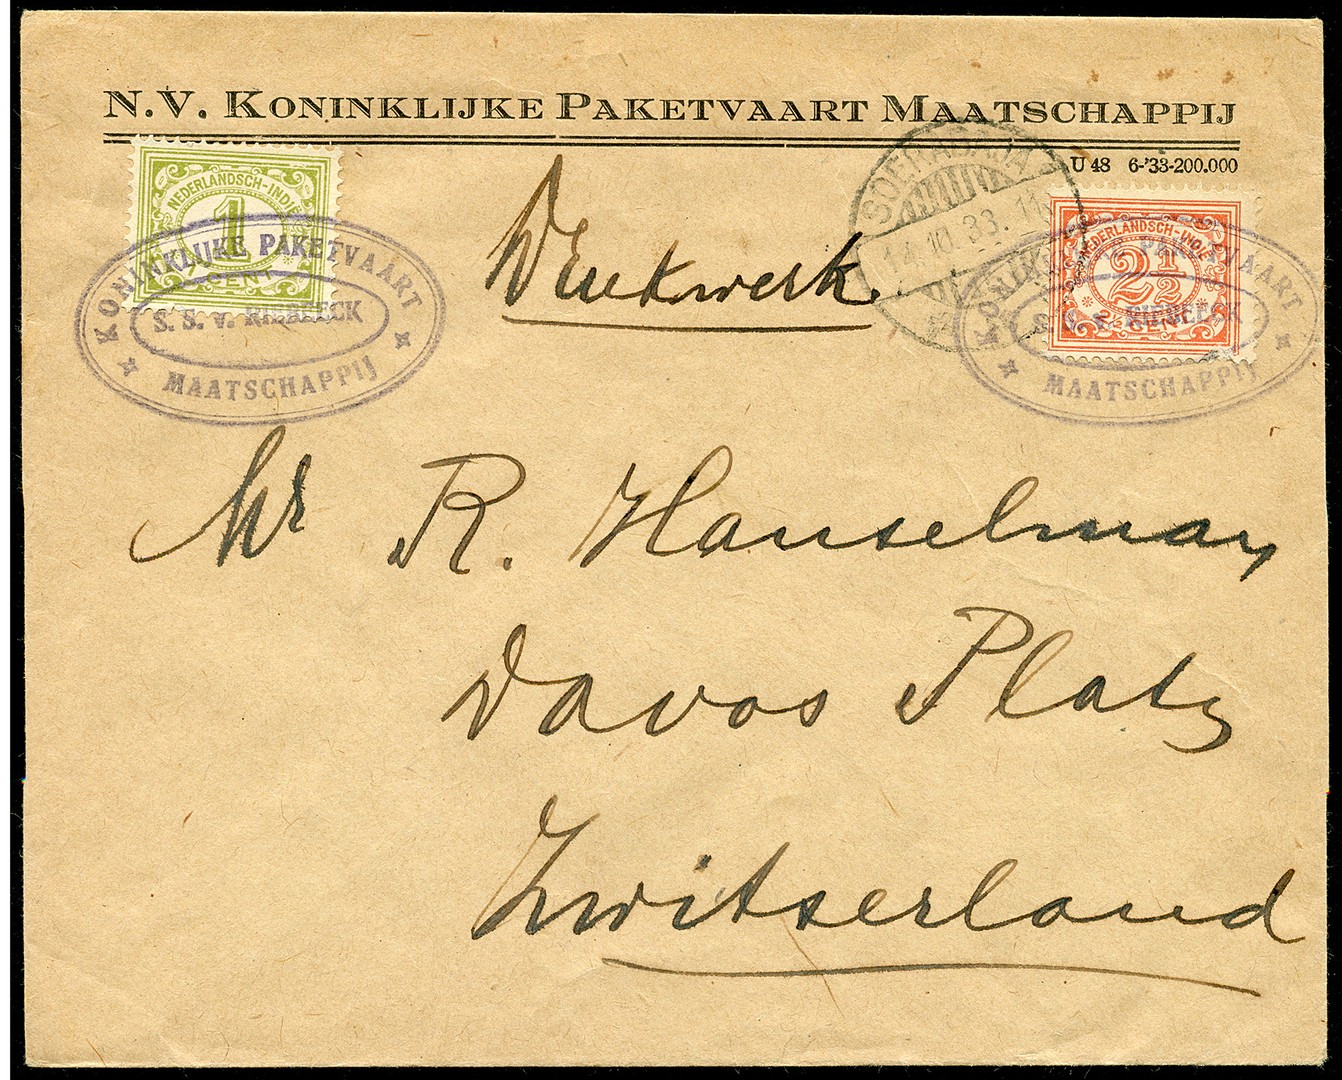 N.V. KONINKLIJKE PAKETVAART MAATSCHAPPIJ
U 48 6-'33-200.000
Drukwerk
NEDERLANDSCH-INDIË
1
CENT
KONINKLIJKE PAKETVAART
S. S. v. RIEBEECK
MAATSCHAPPIJ
SOEKADANA
10.33. 11
NEDERLANDSCH-INDIË
2½
CENT
PAKETVAART
RIEBEECK
MAATSCHAPPIJ
Mr R. Hanselman
Davos Platz
Zwitserland